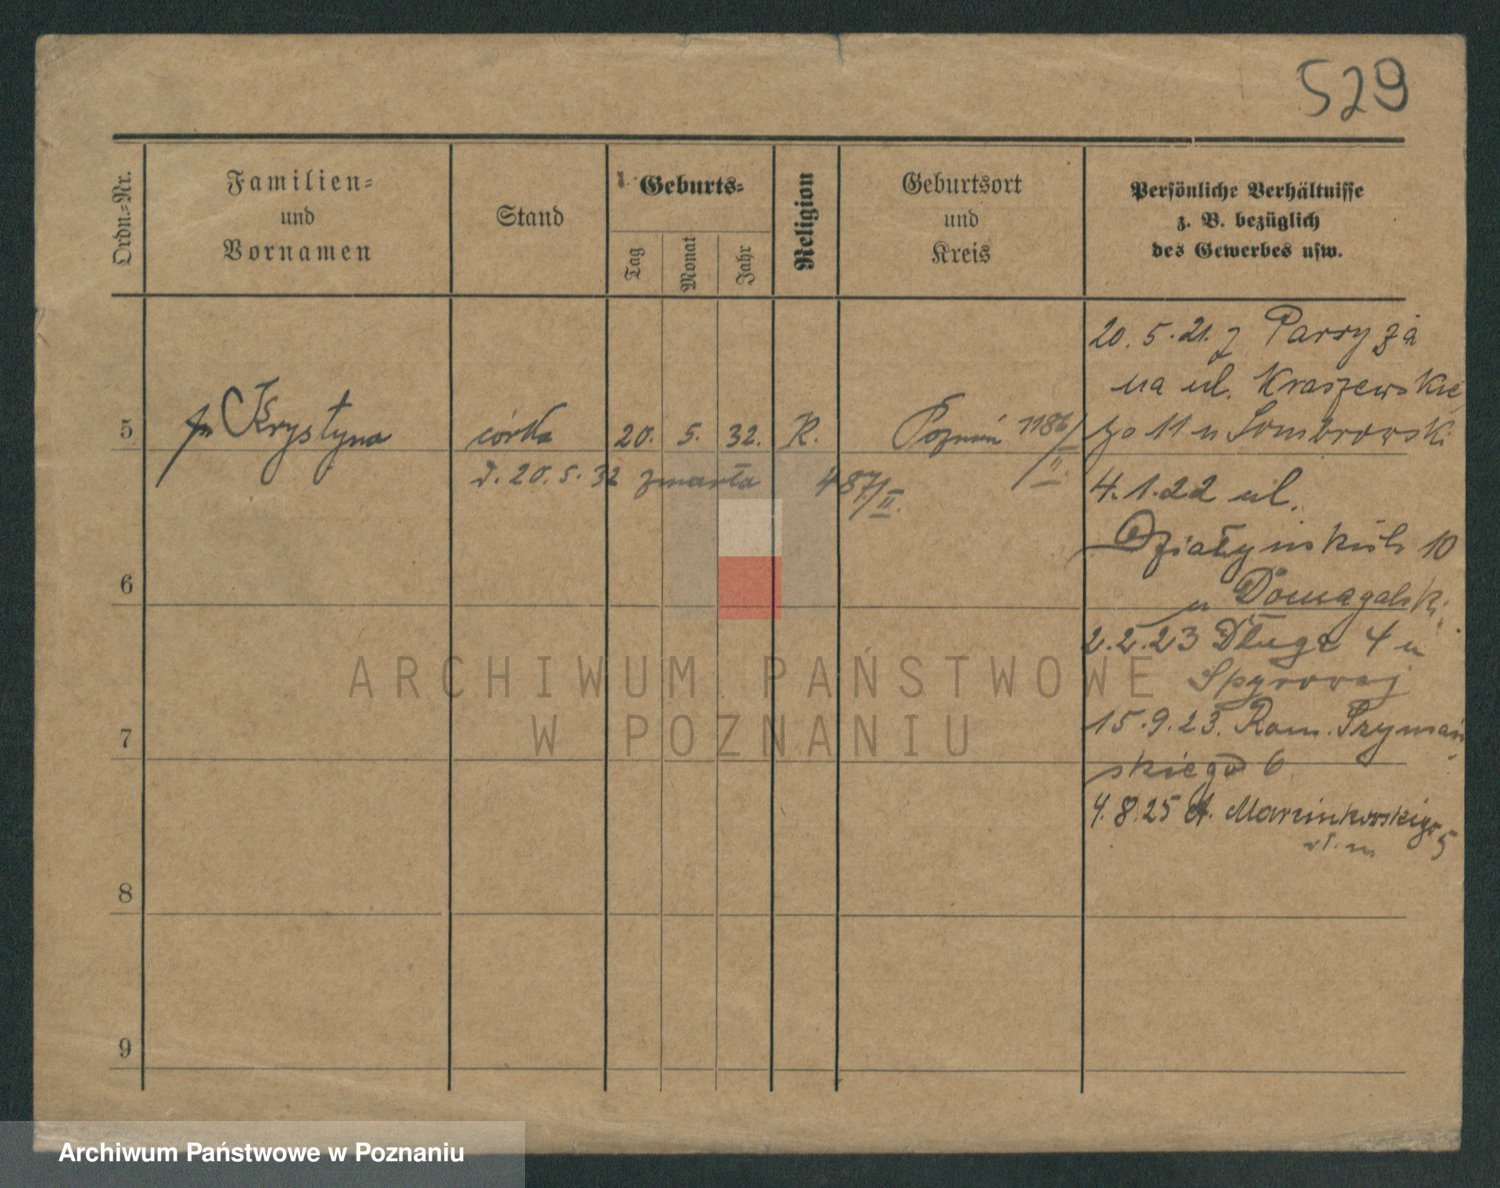 529
Ordn.-Nr.
Familien-
und
Vornamen
Stand
Geburts-
Tag
Monat
Jahr
Religion
Geburtsort
und
Kreis
Persönliche Verhältnisse
z. B. bezüglich
des Gewerbes usw.
5
Krystyna
córka
20. 5. 32.
R.
Poznań 1186/
II
d. 20.5.32 zmarła 487/II.
6
7
8
9
20.5.21. z Paryża
na ul. Kraszewskie
go 11 u Dombrowski
4.1.22 ul.
Działyńskich 10
u Domagalski
2.2.23 Długa 4 u
15.9.23. Rom. Szymań
skiego 6
4.8.25 A. Marcinkowskiego 5
ARCHIWUM PAŃSTWOWE
W POZNANIU
Archiwum Państwowe w Poznaniu